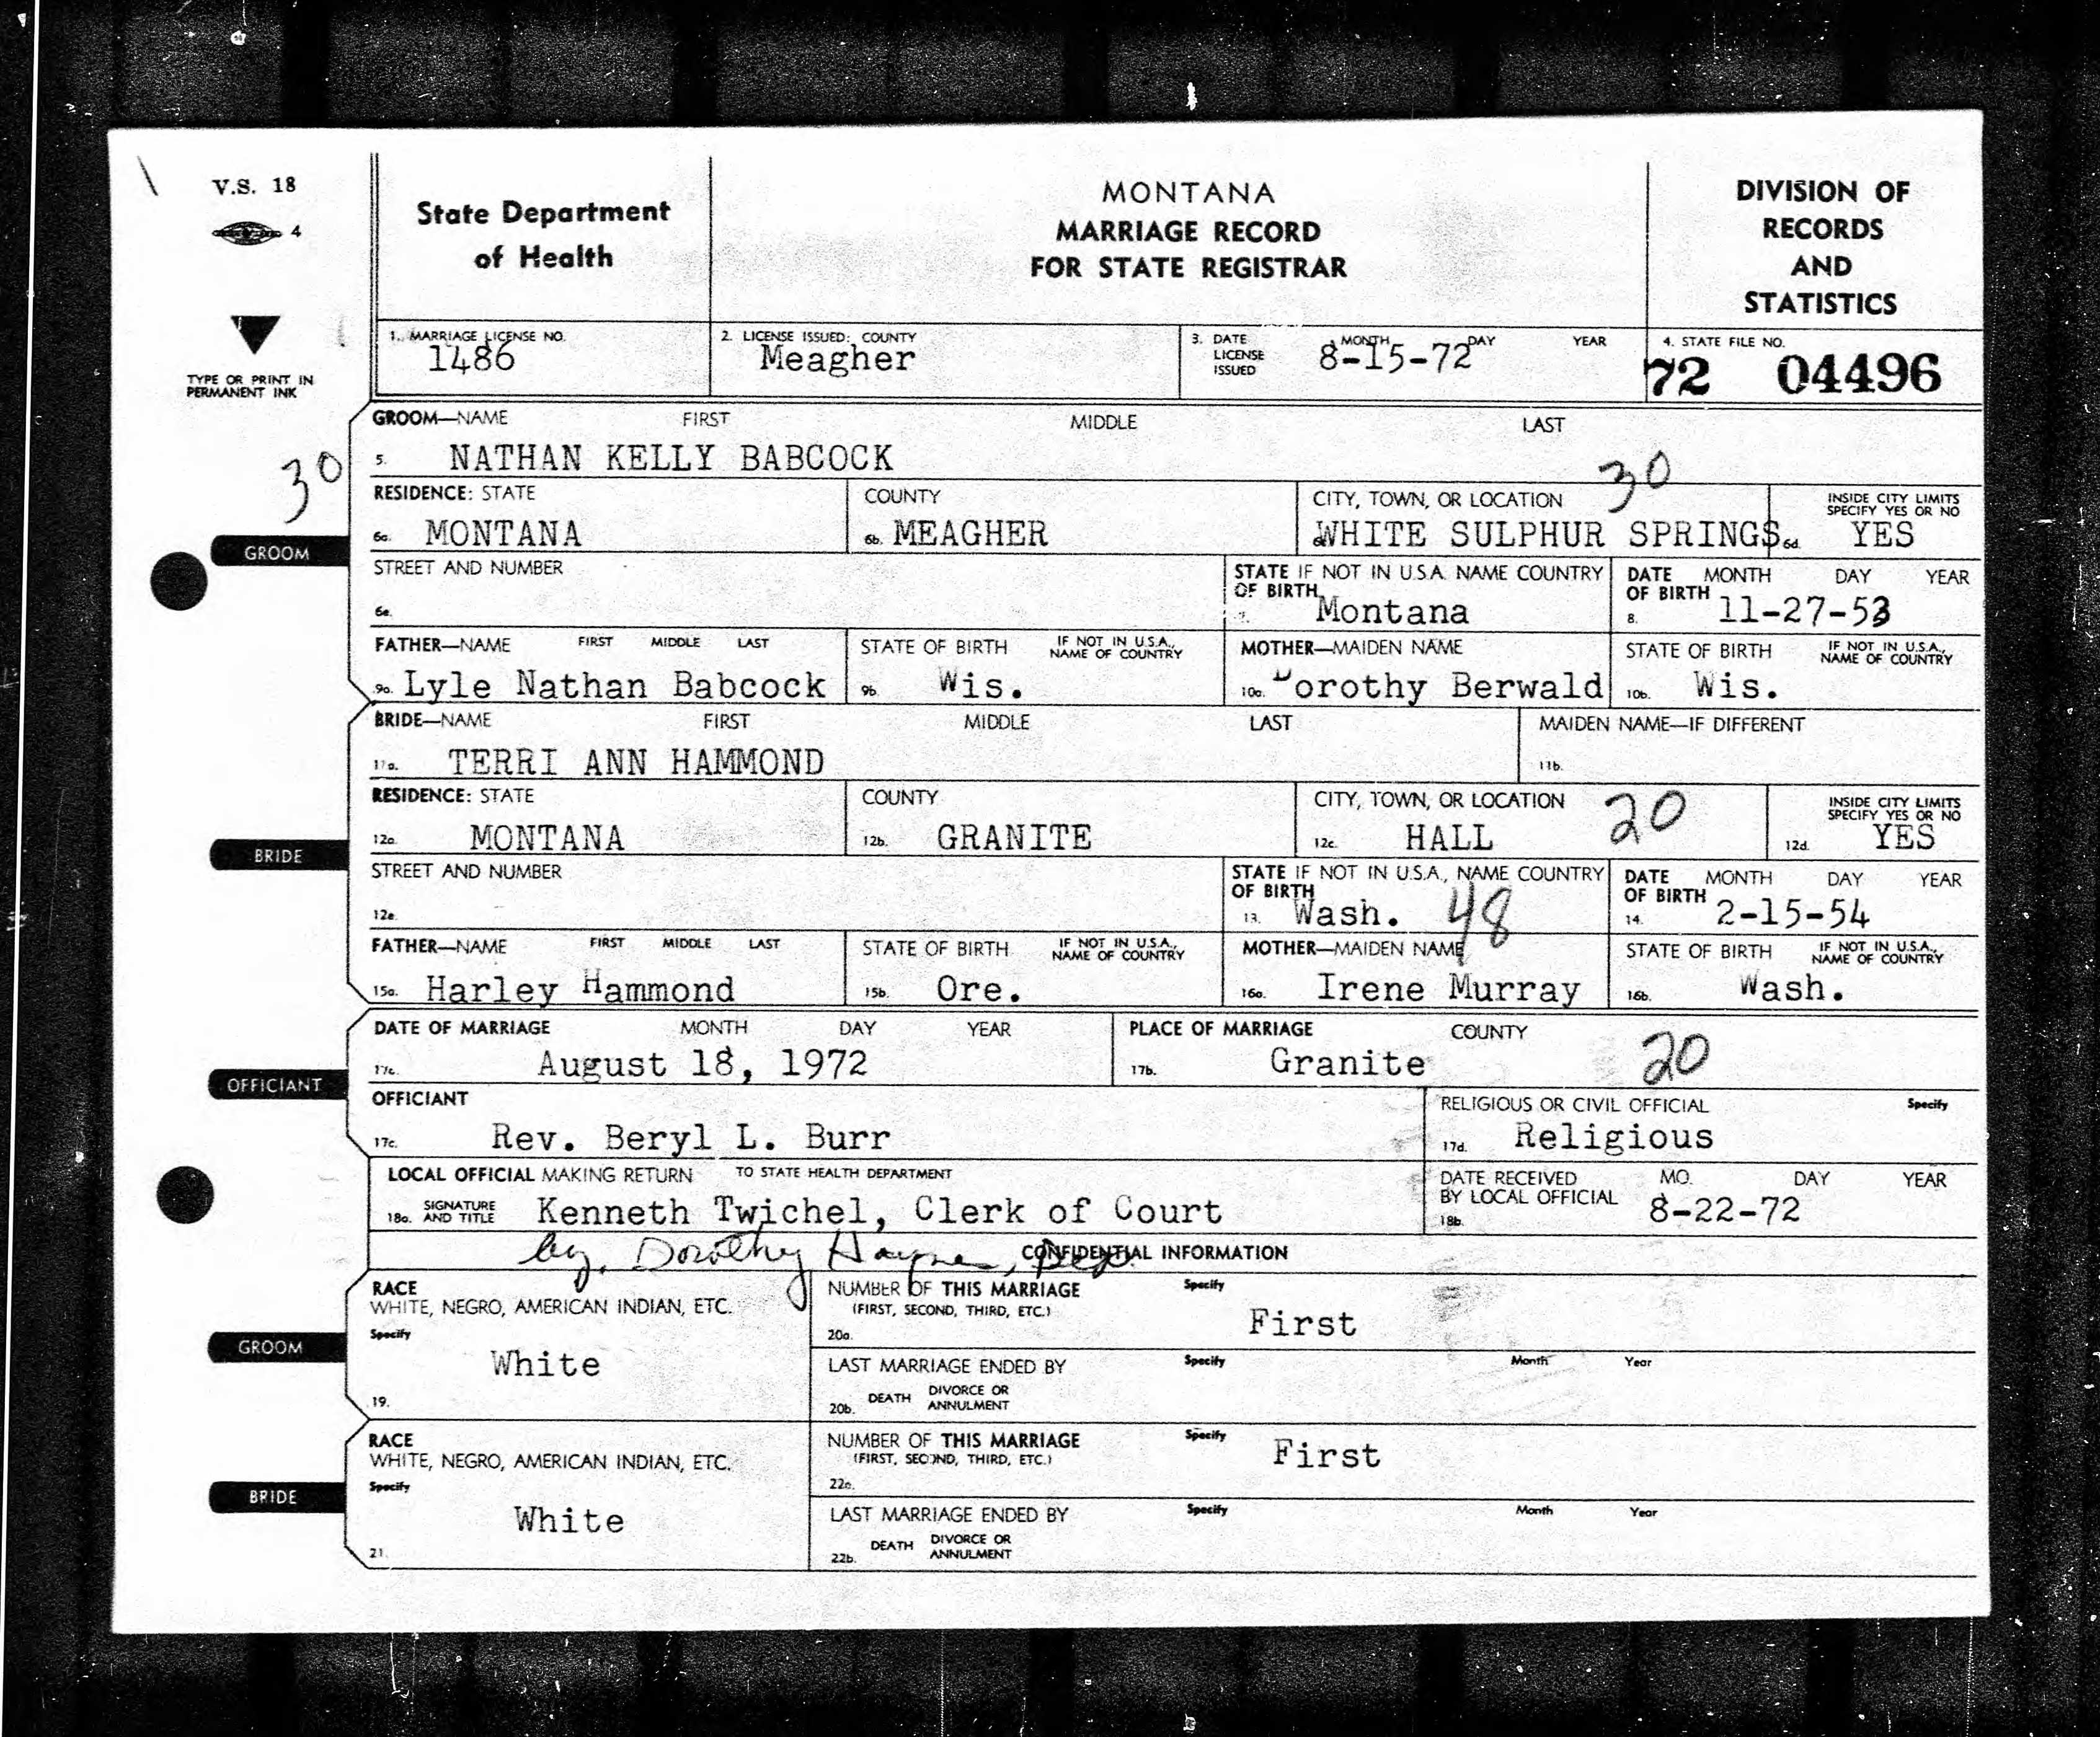 V.S. 18
4
TYPE OR PRINT IN
PERMANENT INK
State Department
of Health
MONTANA
MARRIAGE RECORD
FOR STATE REGISTRAR
DIVISION OF
RECORDS
AND
STATISTICS
1. MARRIAGE LICENSE NO.
1486
2. LICENSE ISSUED: COUNTY
Meagher
3. DATE LICENSE ISSUED MONTH DAY YEAR
8-15-72
4. STATE FILE NO.
72 04496
GROOM—NAME FIRST MIDDLE LAST
5. NATHAN KELLY BABCOCK
30
30
GROOM
RESIDENCE: STATE COUNTY CITY, TOWN, OR LOCATION INSIDE CITY LIMITS SPECIFY YES OR NO
6a. MONTANA 6b. MEAGHER WHITE SULPHUR SPRINGS 6d. YES
STREET AND NUMBER STATE OF BIRTH IF NOT IN U.S.A. NAME COUNTRY DATE OF BIRTH MONTH DAY YEAR
6e. Montana 8. 11-27-53
FATHER—NAME FIRST MIDDLE LAST STATE OF BIRTH IF NOT IN U.S.A., NAME OF COUNTRY MOTHER—MAIDEN NAME STATE OF BIRTH IF NOT IN U.S.A., NAME OF COUNTRY
9a. Lyle Nathan Babcock 9b. Wis. 10a. Dorothy Berwald 10b. Wis.
BRIDE—NAME FIRST MIDDLE LAST MAIDEN NAME—IF DIFFERENT
11a. TERRI ANN HAMMOND 11b.
BRIDE
RESIDENCE: STATE COUNTY CITY, TOWN, OR LOCATION 20 INSIDE CITY LIMITS SPECIFY YES OR NO
12a. MONTANA 12b. GRANITE 12c. HALL 12d. YES
STREET AND NUMBER STATE OF BIRTH IF NOT IN U.S.A., NAME COUNTRY DATE OF BIRTH MONTH DAY YEAR
12e. 13. Wash. 48 14. 2-15-54
FATHER—NAME FIRST MIDDLE LAST STATE OF BIRTH IF NOT IN U.S.A., NAME OF COUNTRY MOTHER—MAIDEN NAME STATE OF BIRTH IF NOT IN U.S.A., NAME OF COUNTRY
15a. Harley Hammond 15b. Ore. 16a. Irene Murray 16b. Wash.
DATE OF MARRIAGE MONTH DAY YEAR PLACE OF MARRIAGE COUNTY
August 18, 1972 17b. Granite 20
OFFICIANT
OFFICIANT RELIGIOUS OR CIVIL OFFICIAL Specify
17c. Rev. Beryl L. Burr 17d. Religious
LOCAL OFFICIAL MAKING RETURN TO STATE HEALTH DEPARTMENT DATE RECEIVED BY LOCAL OFFICIAL MO. DAY YEAR
18a. SIGNATURE AND TITLE Kenneth Twichel, Clerk of Court 18b. 8-22-72
by, Dorothy Haynes, Dep.
CONFIDENTIAL INFORMATION
GROOM
RACE
WHITE, NEGRO, AMERICAN INDIAN, ETC.
Specify
White
19.
NUMBER OF THIS MARRIAGE Specify
(FIRST, SECOND, THIRD, ETC.)
20a. First
LAST MARRIAGE ENDED BY Specify Month Year
20b. DEATH DIVORCE OR ANNULMENT
BRIDE
RACE
WHITE, NEGRO, AMERICAN INDIAN, ETC.
Specify
White
21.
NUMBER OF THIS MARRIAGE Specify
(FIRST, SECOND, THIRD, ETC.)
First
LAST MARRIAGE ENDED BY Specify Month Year
22b. DEATH DIVORCE OR ANNULMENT